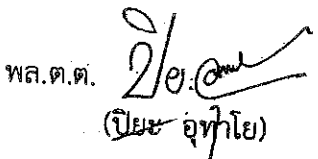 พล.ต.ต.
(ปิยะ อุทาโย)